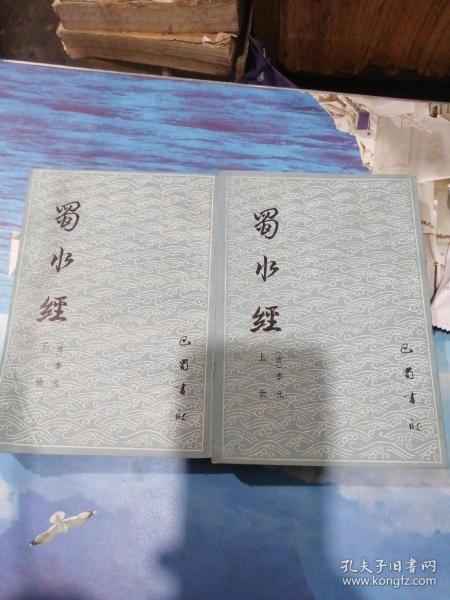 蜀水經
[清]李元
下册
巴蜀書社
蜀水經
[清]李元
上册
巴蜀書社
孔夫子旧书网
www.kongfz.com